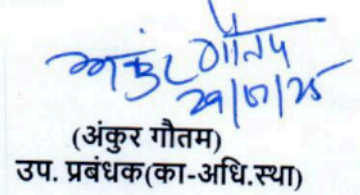 अंकुर गौतम
(अंकुर गौतम)
उप. प्रबंधक(का-अधि.स्था)